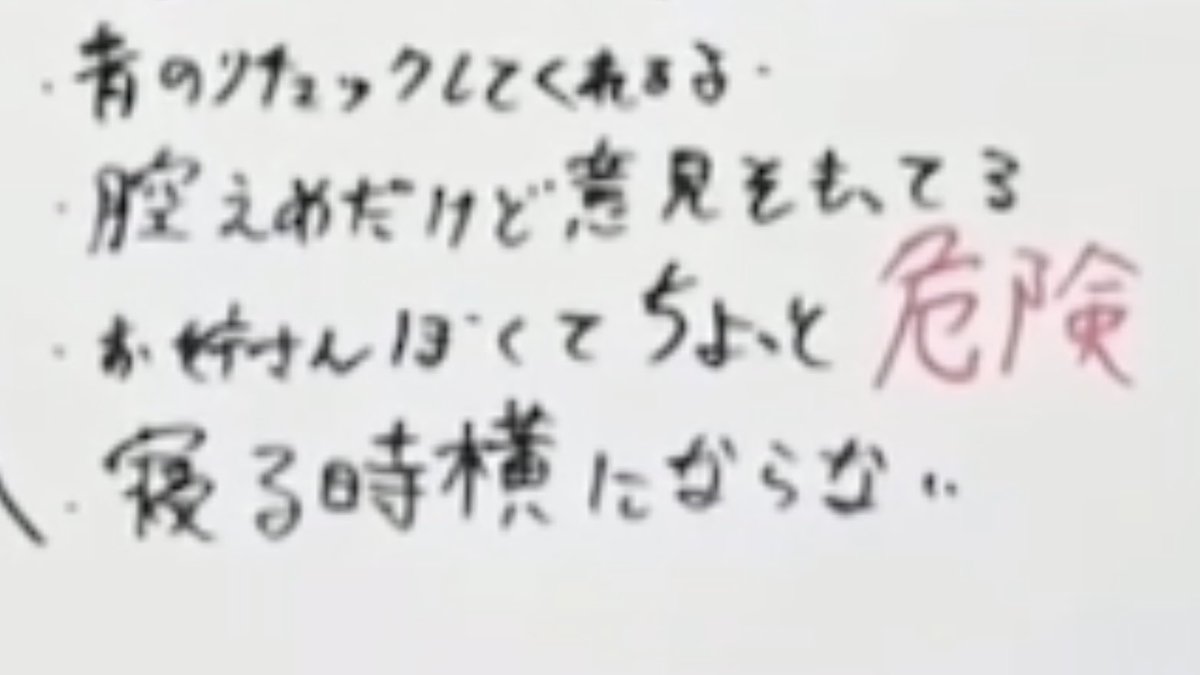 ・青のリチェックしてくれるる・
・控えめだけど意見をもってる
・お姉さんぽくてちょっと危険
・寝る時横にならない